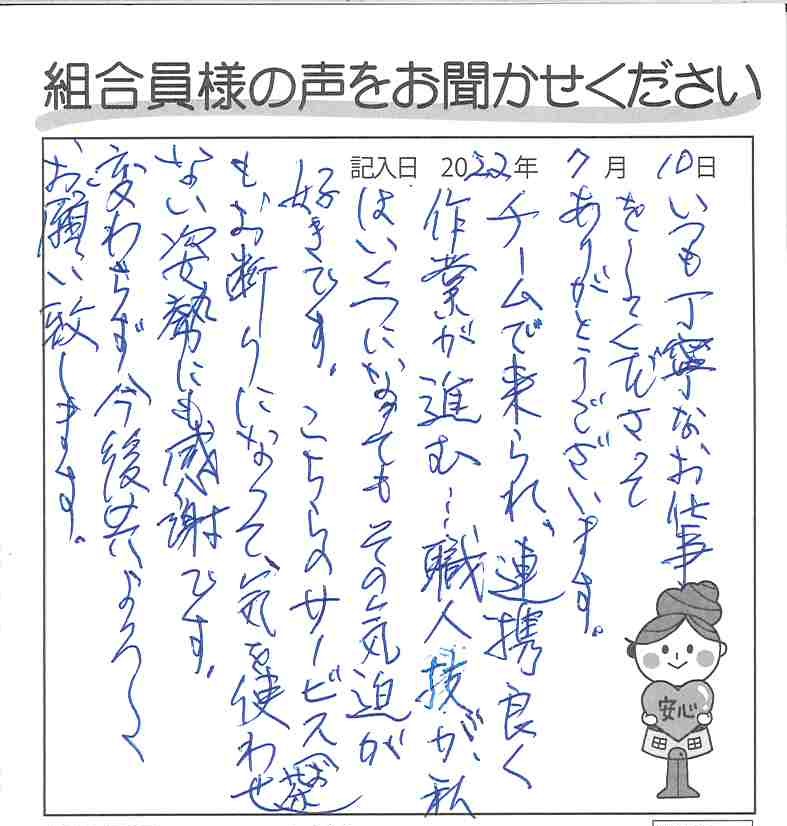 組合員様の声をお聞かせください
記入日 2022年 7月 10日
いつも丁寧なお仕事
をしてくださって
ありがとうございます。
チームで来られ、連携良く
作業が進む…職人技が、私
はいくつになってもその気迫が
好きです。こちらのサービス(お茶)
もお断りになって、気を使わせ
ない姿勢にも感謝です。
変わらず今後共よろしく
お願い致します。
安心